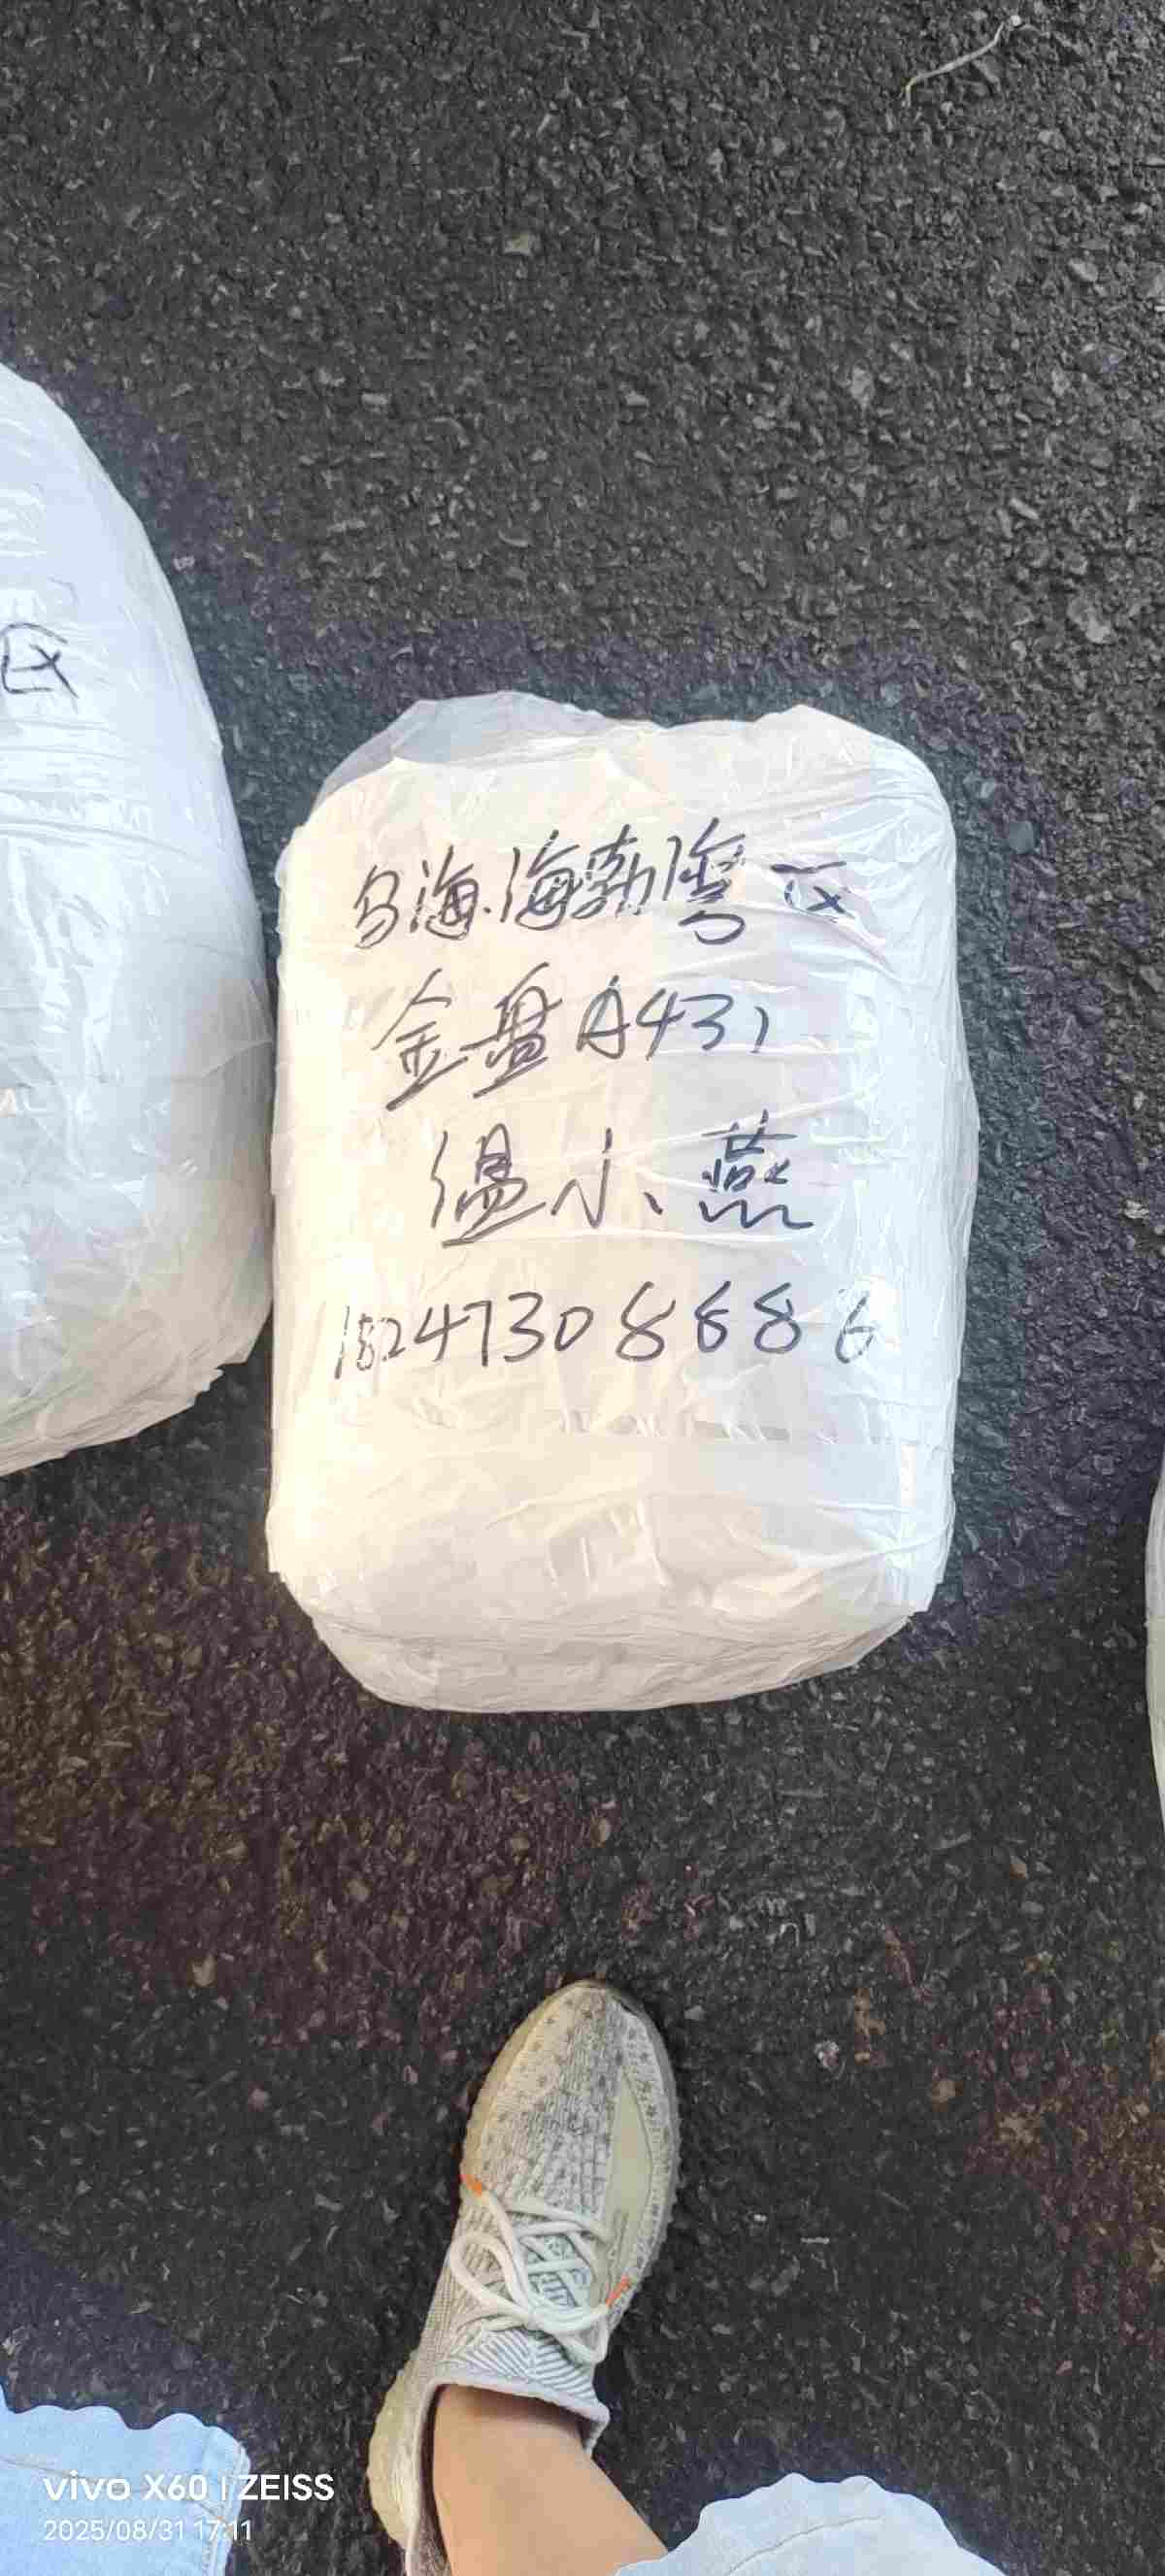 区
乌海.海勃湾区
金盘A431
温小燕
15247308886
AL
vivo X60 | ZEISS
2025/08/31 17:11